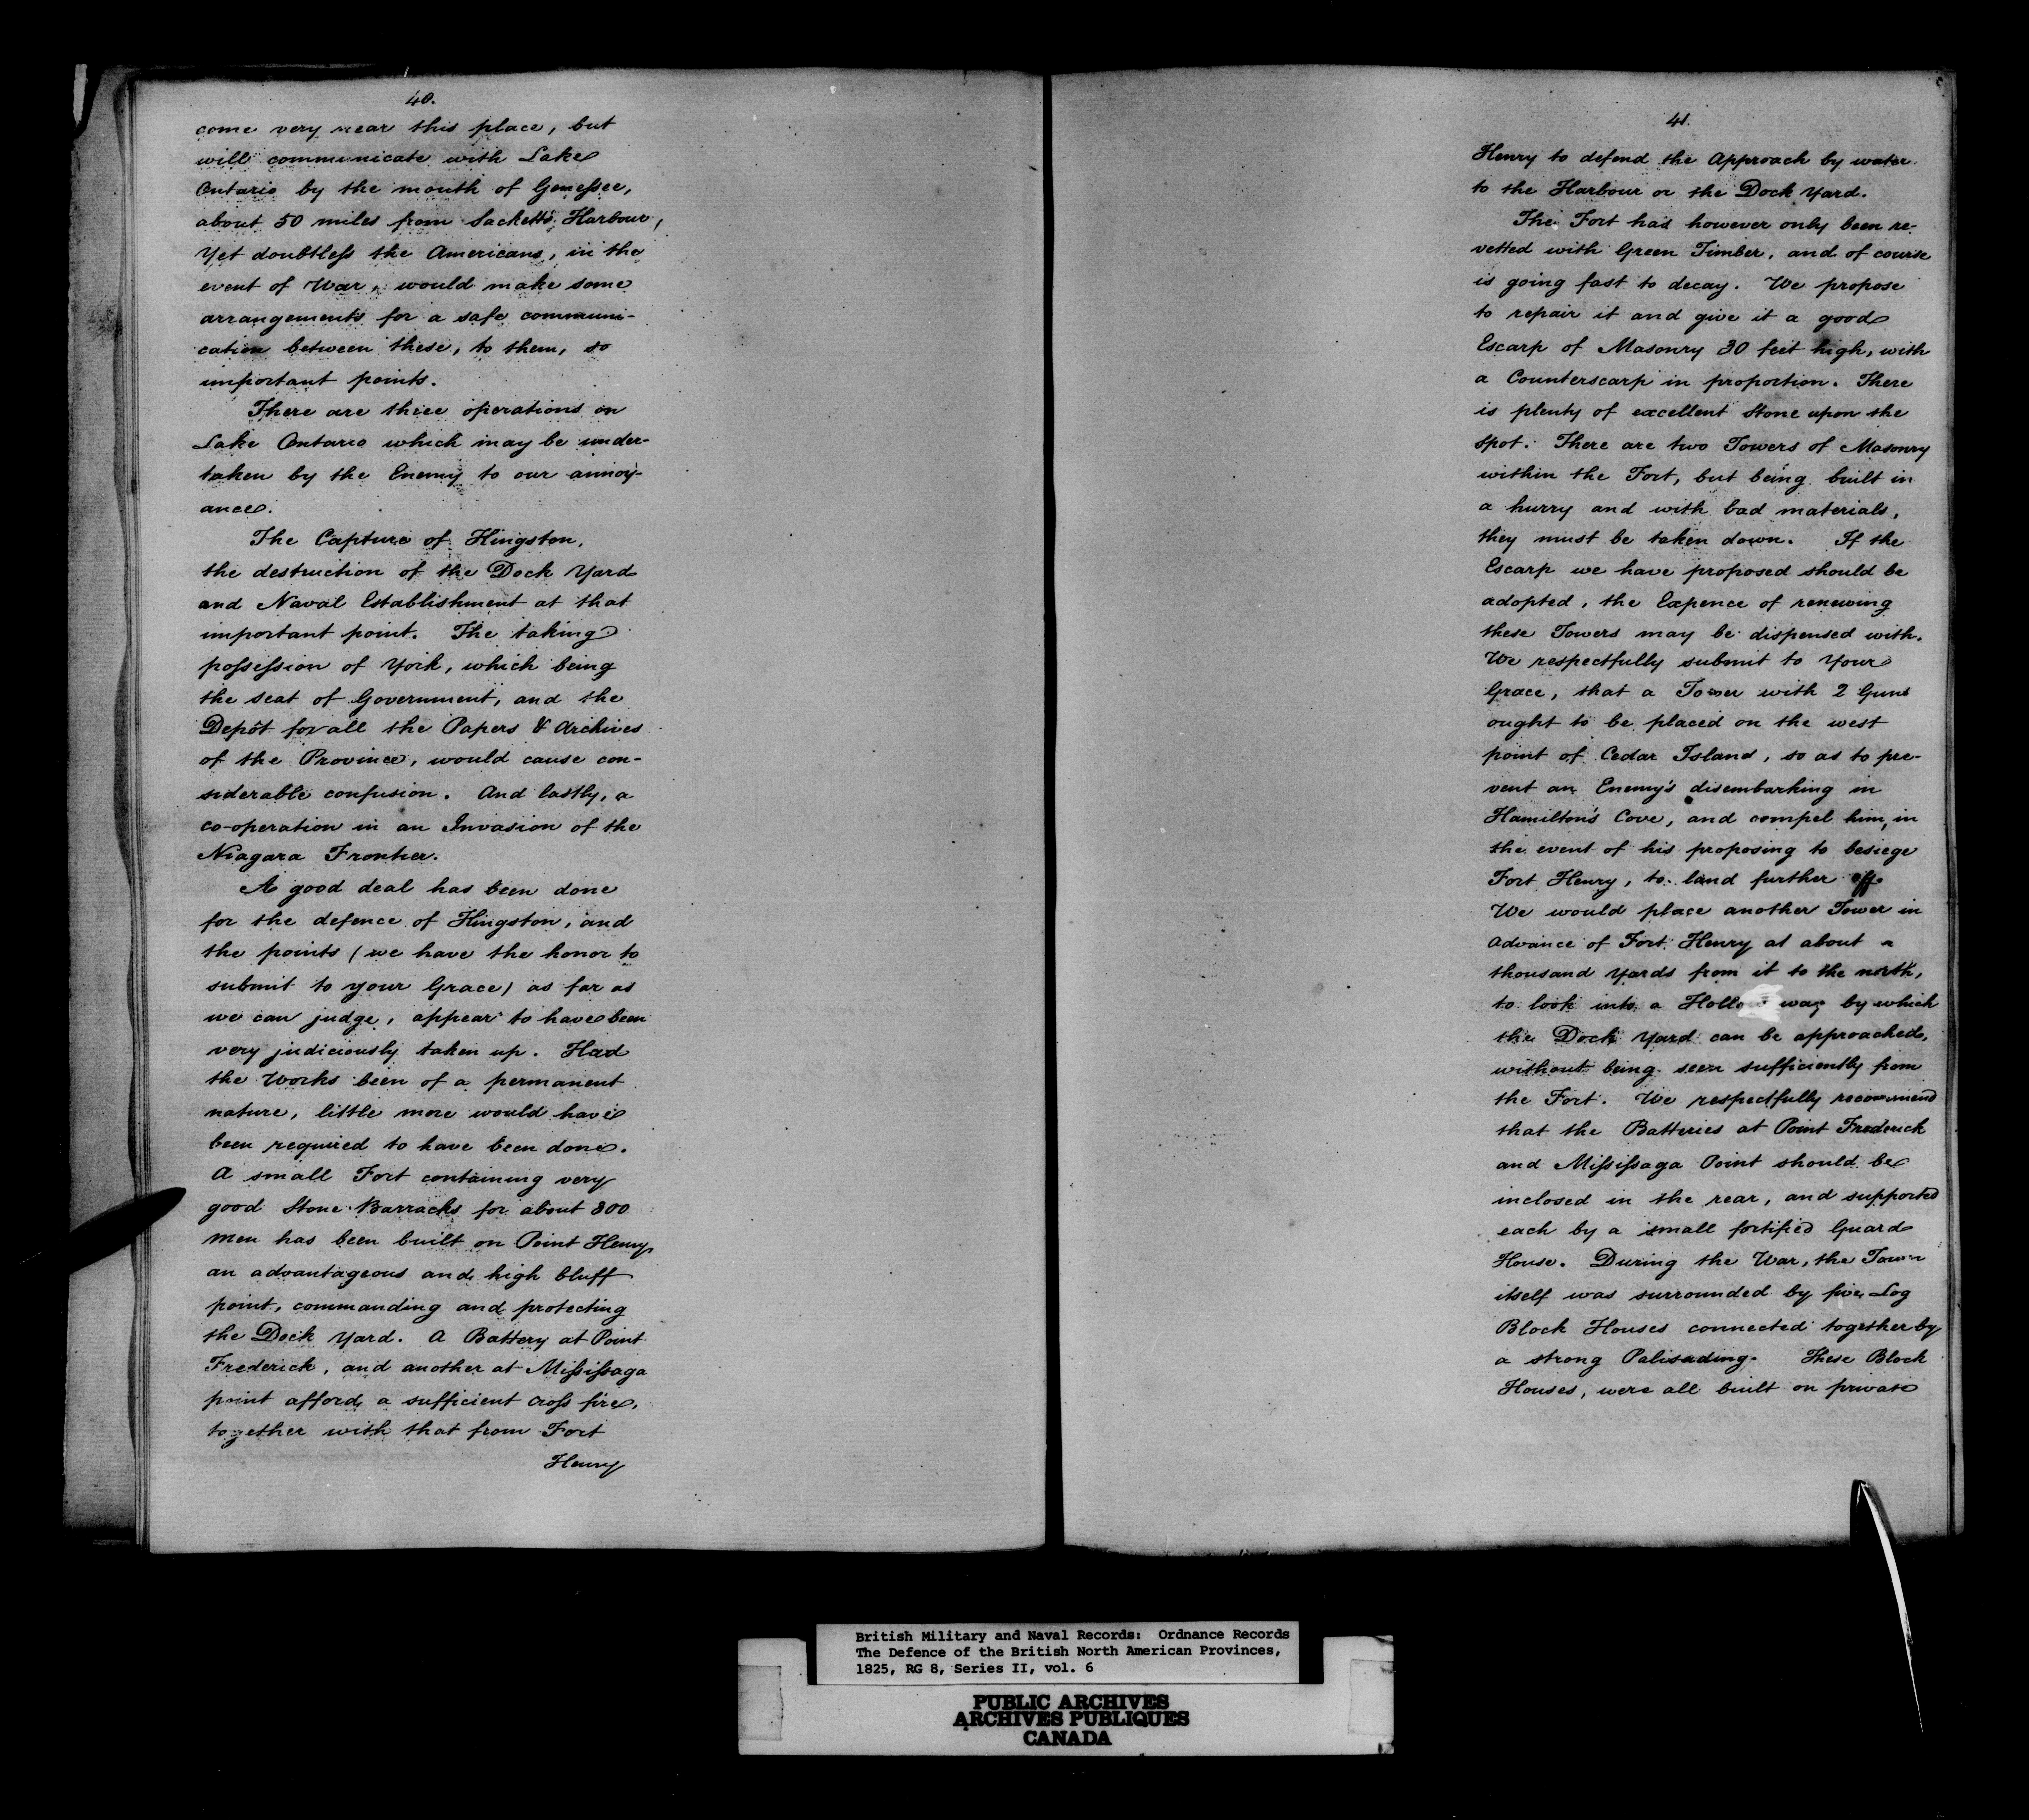 40.
come very near this place, but
will communicate with Lake
Ontario by the mouth of Genessee,
about 50 miles from Sacketts Harbour,
Yet doubtless the Americans, in the
event of War, would make some
arrangements for a safe communi-
cation between these, to them, so
important points.
There are three operations on
Lake Ontario which may be under-
taken by the Enemy to our annoy-
ance.
The Capture of Kingston,
the destruction of the Dock Yard
and Naval Establishment at that
important point. The taking
possession of York, which being
the seat of Government, and the
Depôt for all the Papers & Archives
of the Province, would cause con-
siderable confusion. And lastly, a
co-operation in an Invasion of the
Niagara Frontier.
A good deal has been done
for the defence of Kingston, and
the points (we have the honor to
submit to your Grace) as far as
we can judge, appear to have been
very judiciously taken up. Had
the Works been of a permanent
nature, little more would have
been required to have been done.
A small Fort containing very
good Stone Barracks for about 300
men has been built on Point Henry
an advantageous and high bluff
point, commanding and protecting
the Dock Yard. A Battery at Point
Frederick, and another at Mississaga
point afford a sufficient cross fire,
together with that from Fort
Henry
41.
Henry to defend the Approach by water
to the Harbour or the Dock Yard.
The Fort has however only been re-
vetted with Green Timber, and of course
is going fast to decay. We propose
to repair it and give it a good
Escarp of Masonry 30 feet high, with
a Counterscarp in proportion. There
is plenty of excellent Stone upon the
spot. There are two Towers of Masonry
within the Fort, but being built in
a hurry and with bad materials,
they must be taken down. If the
Escarp we have proposed should be
adopted, the Expence of renewing
these Towers may be dispensed with.
We respectfully submit to Your
Grace, that a Tower with 2 Guns
ought to be placed on the west
point of Cedar Island, so as to pre-
vent an Enemy's disembarking in
Hamilton's Cove, and compel him, in
the event of his proposing to besiege
Fort Henry, to land further off
We would place another Tower in
advance of Fort Henry at about a
thousand yards from it to the north,
to look into a Hollow way by which
the Dock Yard can be approached,
without being seen sufficiently from
the Fort. We respectfully recommend
that the Batteries at Point Frederick
and Mississaga Point should be
inclosed in the rear, and supported
each by a small fortified Guard
House. During the War, the Town
itself was surrounded by five Log
Block Houses connected together by
a strong Palisading. These Block
Houses, were all built on private
British Military and Naval Records: Ordnance Records
The Defence of the British North American Provinces,
1825, RG 8, Series II, vol. 6
PUBLIC ARCHIVES
ARCHIVES PUBLIQUES
CANADA